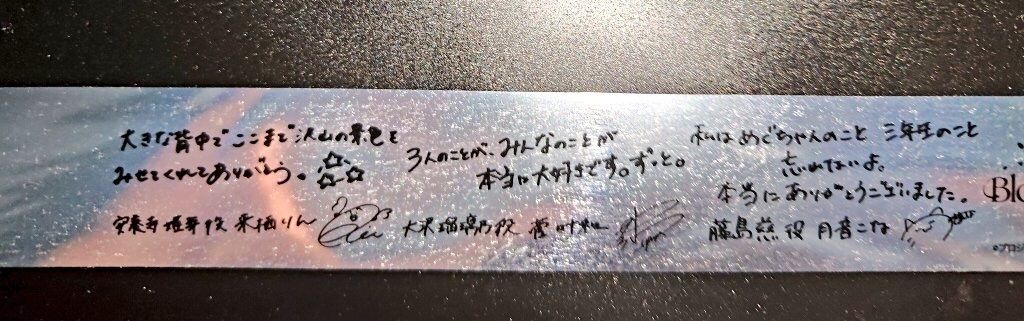 大きな背中でここまで沢山の景色を
みせてくれてありがとう。
安養寺姫芽役 来栖りん
3人のことが、みんなのことが
本当に大好きです。ずっと。
大沢瑠璃乃役 菅叶和
私はめぐちゃんのこと 三年生のこと
忘れないよ。
本当にありがとうございました。
藤島慈役 月音こな
Blo